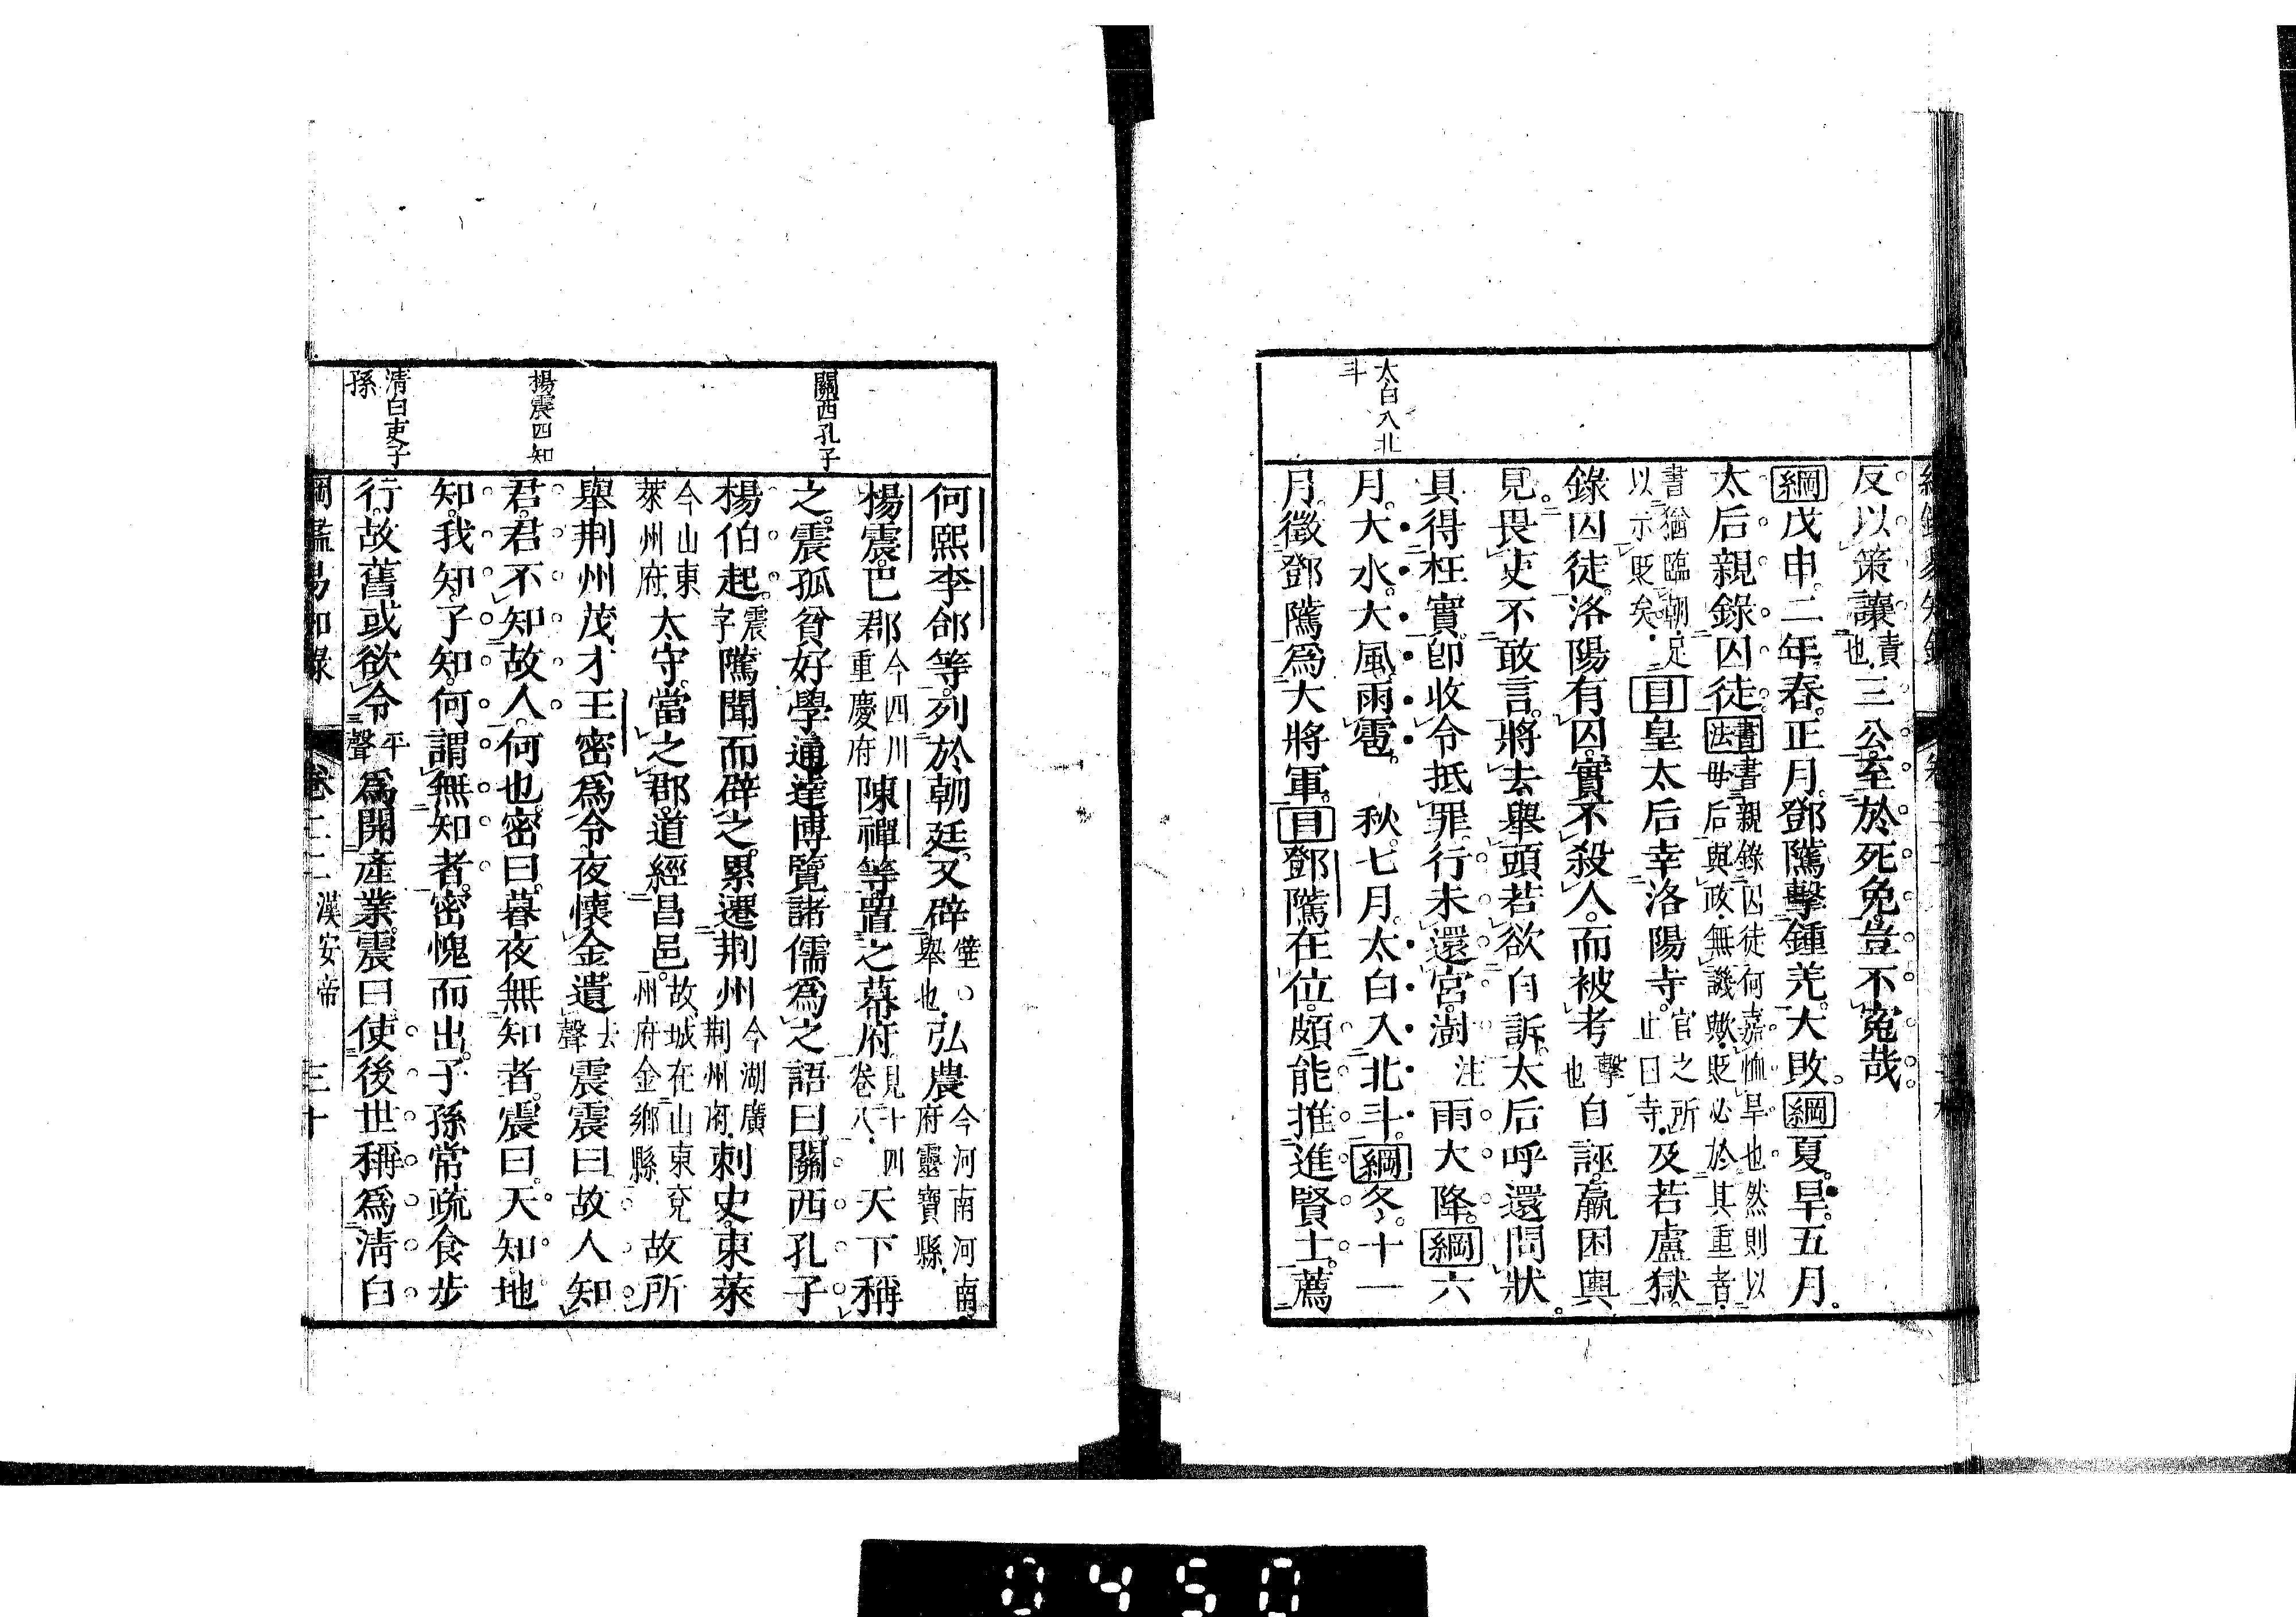 太白入北
斗
反以策讓責也三公至於死免豈不冤哉
綱戊申二年春正月鄧隲擊鍾羌大敗綱夏旱五月
太后親錄囚徒書法書親錄囚徒何嘉恤旱也然則以毋后與政無譏歟貶必於其重者
書猶臨朝足以示貶矣目皇太后幸洛陽寺官之所止曰寺及若盧獄
錄囚徒洛陽有囚實不殺人而被考擊也自誣羸困輿
見畏吏不敢言將去舉頭若欲自訴太后呼還問狀
具得枉實卽收令抵罪行未還宮澍注雨大降綱六
月大水大風雨雹 秋七月太白入北斗綱冬十一
月徵鄧隲爲大將軍目鄧隲在位頗能推進賢士薦
關西孔子
楊震四知
清白吏子
孫
何熙李郃等列於朝廷又辟璧舉也弘農今河南河南府靈寶縣
楊震巴郡今四川重慶府陳禪等置之幕府見十四卷八天下稱
之震孤貧好學通達博覽諸儒爲之語曰關西孔子
楊伯起震字隲聞而辟之累遷荆州今湖廣荆州府刺史東萊
今山東萊州府太守當之郡道經昌邑故城在山東兗州府金鄉縣故所
舉荆州茂才王密爲令夜懷金遺去聲震震曰故人知
君君不知故人何也密曰暮夜無知者震曰天知地
知我知子知何謂無知者密愧而出子孫常疏食步
行故舊或欲令平聲爲開產業震曰使後世稱爲清白
綱鑑易知錄 卷二二 漢安帝 三十
0450